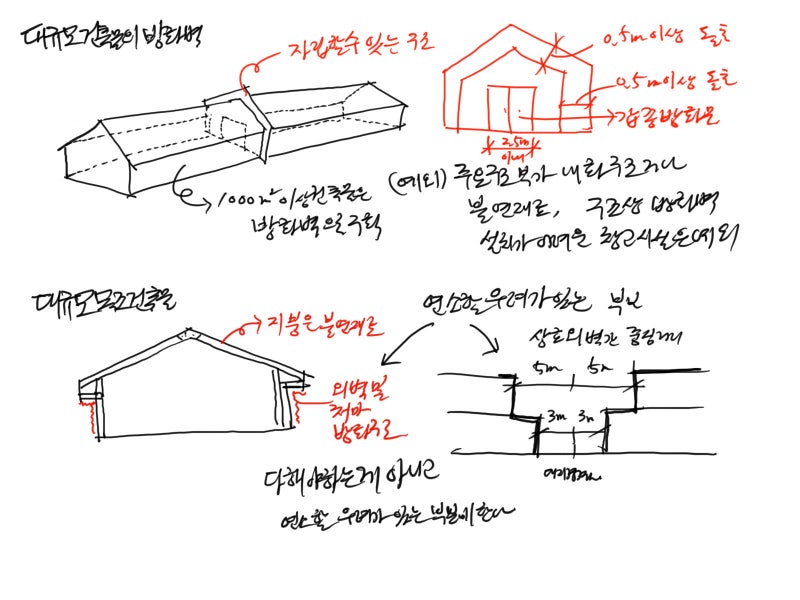 대규모건축물의 방화벽
자립할수 있는 구조
0.5m이상 돌출
0.5m이상 돌출
갑종방화문
2.5m
이내
1000㎡이상건축물은
방화벽으로구획
(예외) 주요구조부가 내화구조거나
불연재료, 구조상 방화벽
설치가 어려운 창고시설은예외
대규모목조건축물
지붕은불연재로
외벽및
처마
방화구조
연소할우려가있는 부분
상호외벽간 중심거리
5m 5m
3m 3m
다해야하는게 아니고
연소할 우려가 있는부분에한다